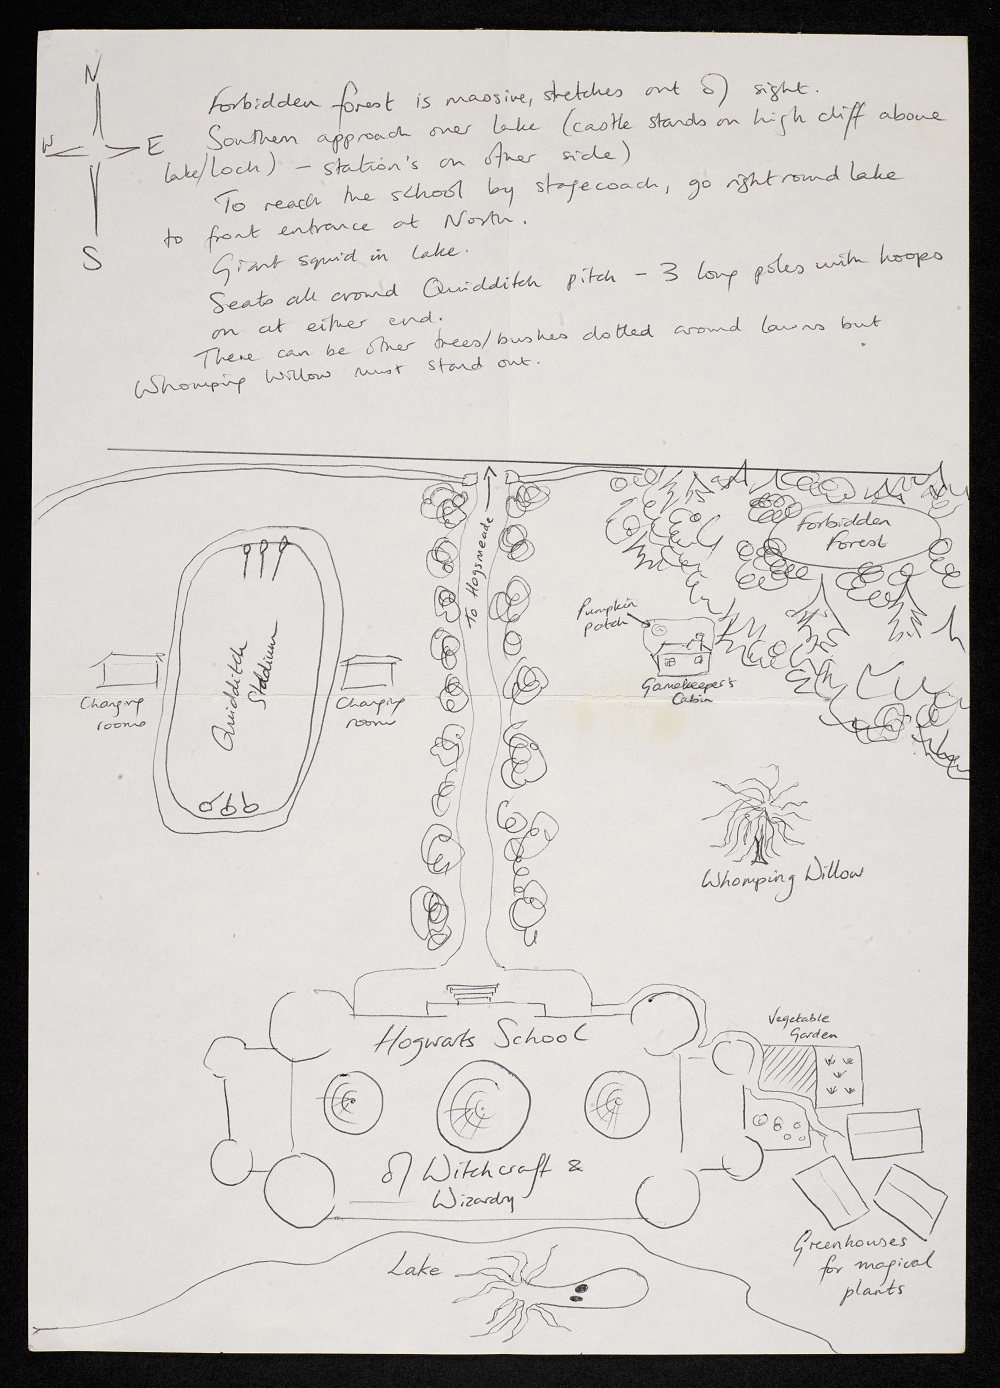 N
W
E
S
Forbidden forest is massive, stretches out of sight.
Southern approach over lake (castle stands on high cliff above
lake/loch) – station's on other side)
To reach the school by stagecoach, go right round lake
to front entrance at North.
Giant squid in Lake.
Seats all around Quidditch pitch – 3 long poles with hoops
on at either end.
There can be other trees/bushes dotted around lawns but
Whomping Willow must stand out.
To Hogsmeade
Forbidden
Forest
Pumpkin
patch
Gamekeeper's
Cabin
Quidditch
Stadium
Changing
rooms
Changing
rooms
Whomping Willow
Hogwarts School
of Witchcraft &
Wizardry
Vegetable
Garden
Greenhouses
for magical
plants
Lake